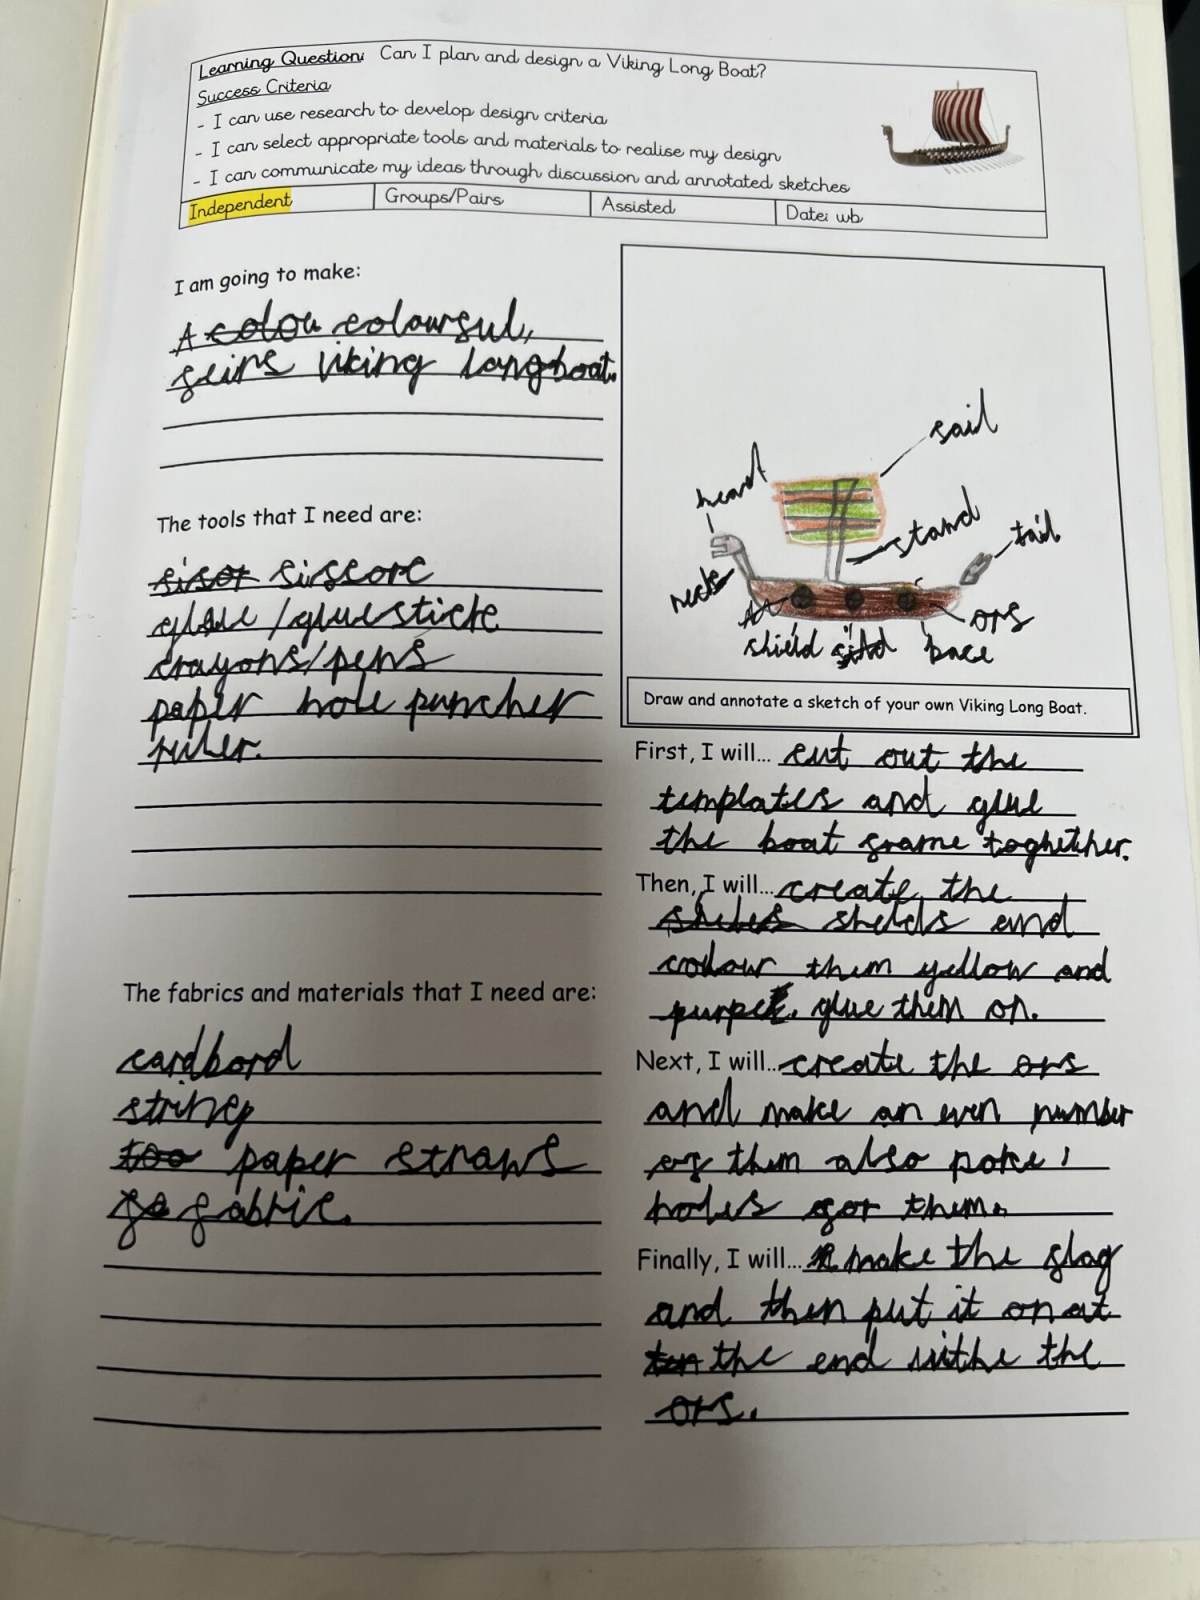 Learning Question: Can I plan and design a Viking Long Boat?
Success Criteria
- I can use research to develop design criteria
- I can select appropriate tools and materials to realise my design
- I can communicate my ideas through discussion and annotated sketches
Independent Groups/Pairs Assisted Date: wb
I am going to make:
A colou colourful,
feirs viking longboat.
The tools that I need are:
sisor sissorc
glue/gluestick
crayons/pens
paper hole puncher
ruler.
The fabrics and materials that I need are:
cardbord
string
too paper straws
fa fabric.
sail
heard
stand
tail
neck
ors
shield
bace
Draw and annotate a sketch of your own Viking Long Boat.
First, I will... cut out the
templates and glue
the boat frame toghether.
Then, I will... create the
shelds and
colour them yellow and
glue them on.
Next, I will... create the ors
and make an even number
of them also poke
holes for them.
Finally, I will... make the flag
and then put it on at
the end withe the
ors.